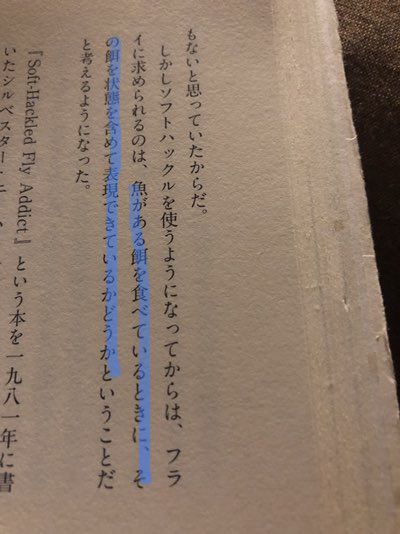 もないと思っていたからだ。
しかしソフトハックルを使うようになってからは、フラ
イに求められるのは、魚がある餌を食べているときに、そ
の餌を状態を含めて表現できているかどうかということだ
と考えるようになった。
『Soft-Hackled Fly Addict』という本を一九八一年に書
いたシルベスター・ニ